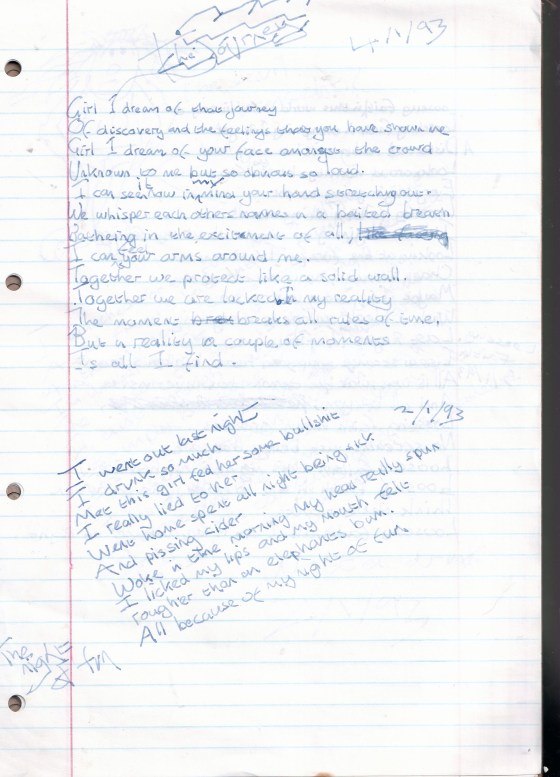 The Journey
4/1/93
Girl I dream of that journey
Of discovery and the feelings that you have shown me
Girl I dream of your face amongst the crowd
Unknown to me but so obvious so loud.
I can see it now in my mind your hand stretching out.
We whisper each others names in a baited breath
Bathering in the excitement of all,
I can feel your arms around me.
Together we protect like a solid wall.
Together we are locked in my reality
The moment breaks all rules of time.
But in reality a couple of moments
Is all I find.
2/1/93
I went out last night
I drunk so much
Met this girl fed her some bullshit
I really lied to her
Went home spent all night being sick.
And pissing cider
Woke in the morning my head really spun
I licked my lips and my mouth felt
rougher than an elephants bum.
All because of my night of fun.
The night
of fun